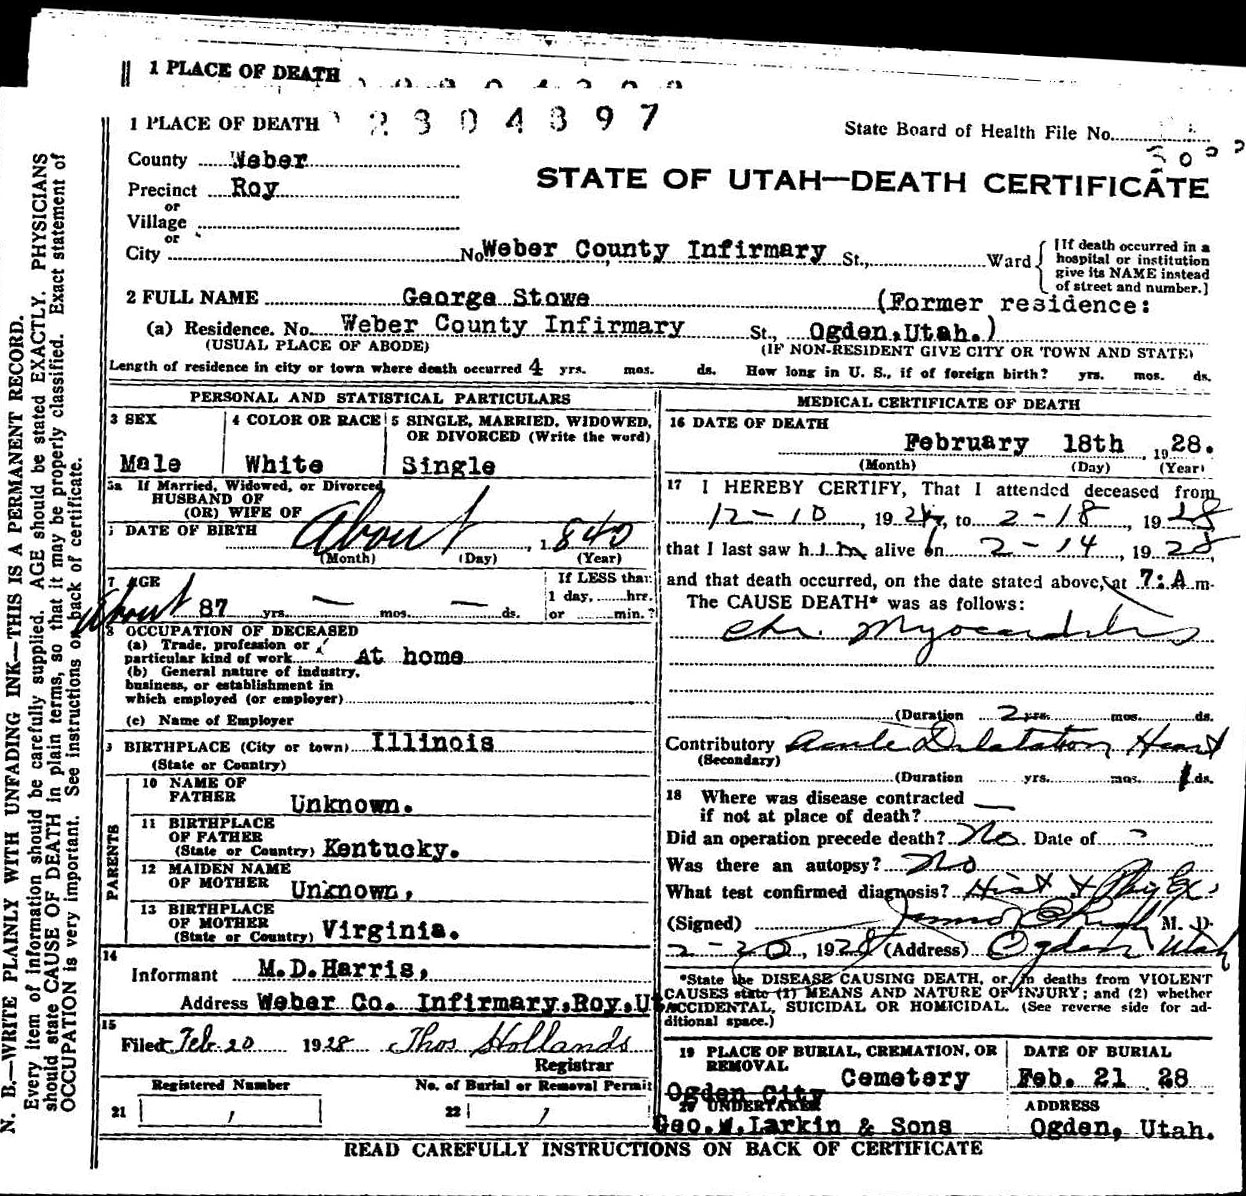 1 PLACE OF DEATH
1 PLACE OF DEATH 2304397
State Board of Health File No.
County Weber
STATE OF UTAH—DEATH CERTIFICATE
Precinct Roy
or
Village
or
City
No Weber County Infirmary St., Ward
[If death occurred in a
hospital or institution
give its NAME instead
of street and number.]
2 FULL NAME George Stowe (Former residence:
(a) Residence. No. Weber County Infirmary St., Ogden, Utah.)
(USUAL PLACE OF ABODE) (IF NON-RESIDENT GIVE CITY OR TOWN AND STATE)
Length of residence in city or town where death occurred 4 yrs. mos. ds. How long in U. S., if of foreign birth? yrs. mos. ds.
PERSONAL AND STATISTICAL PARTICULARS
3 SEX
Male
4 COLOR OR RACE
White
5 SINGLE, MARRIED, WIDOWED,
OR DIVORCED (Write the word)
Single
5a If Married, Widowed, or Divorced
HUSBAND OF
(OR) WIFE OF
DATE OF BIRTH About 1840
(Month) (Day) (Year)
7 AGE
About 87 yrs. — mos. — ds.
If LESS than
1 day, hrs.
or min.?
8 OCCUPATION OF DECEASED
(a) Trade, profession or
particular kind of work At home
(b) General nature of industry,
business, or establishment in
which employed (or employer)
(c) Name of Employer
9 BIRTHPLACE (City or town) Illinois
(State or Country)
PARENTS
10 NAME OF
FATHER Unknown.
11 BIRTHPLACE
OF FATHER
(State or Country) Kentucky.
12 MAIDEN NAME
OF MOTHER Unknown,
13 BIRTHPLACE
OF MOTHER
(State or Country) Virginia.
14
Informant M.D.Harris,
Address Weber Co. Infirmary,Roy,Ut
15
Filed Feb. 20 1928 Thos Hollands
Registrar
Registered Number No. of Burial or Removal Permit
21 22
MEDICAL CERTIFICATE OF DEATH
16 DATE OF DEATH
February 18th, 1928.
(Month) (Day) (Year)
17 I HEREBY CERTIFY, That I attended deceased from
12-10, 192, to 2-18, 1928
that I last saw him alive on 2-14, 1928
and that death occurred, on the date stated above, at 7:A m.
The CAUSE DEATH* was as follows:
Chr. Myocarditis
(Duration 2 yrs. mos. ds.
Contributory Acute Dilatation Heart
(Secondary)
(Duration yrs. mos. 1 ds.
18 Where was disease contracted
if not at place of death? —
Did an operation precede death? No. Date of ?
Was there an autopsy? No
What test confirmed diagnosis? Hist & Phy Ex.
(Signed) M. D.
2-20, 1928 (Address) Ogden Utah
*State the DISEASE CAUSING DEATH, or, in deaths from VIOLENT
CAUSES state (1) MEANS AND NATURE OF INJURY; and (2) whether
ACCIDENTAL, SUICIDAL OR HOMICIDAL. (See reverse side for ad-
ditional space.)
19 PLACE OF BURIAL, CREMATION, OR
REMOVAL
Ogden City Cemetery
DATE OF BURIAL
Feb. 21 28
20 UNDERTAKER
Geo.W.Larkin & Sons
ADDRESS
Ogden, Utah.
READ CAREFULLY INSTRUCTIONS ON BACK OF CERTIFICATE
N. B.—WRITE PLAINLY WITH UNFADING INK—THIS IS A PERMANENT RECORD.
Every item of information should be carefully supplied. AGE should be stated EXACTLY. PHYSICIANS
should state CAUSE OF DEATH in plain terms, so that it may be properly classified. Exact statement of
OCCUPATION is very important. See instructions on back of certificate.